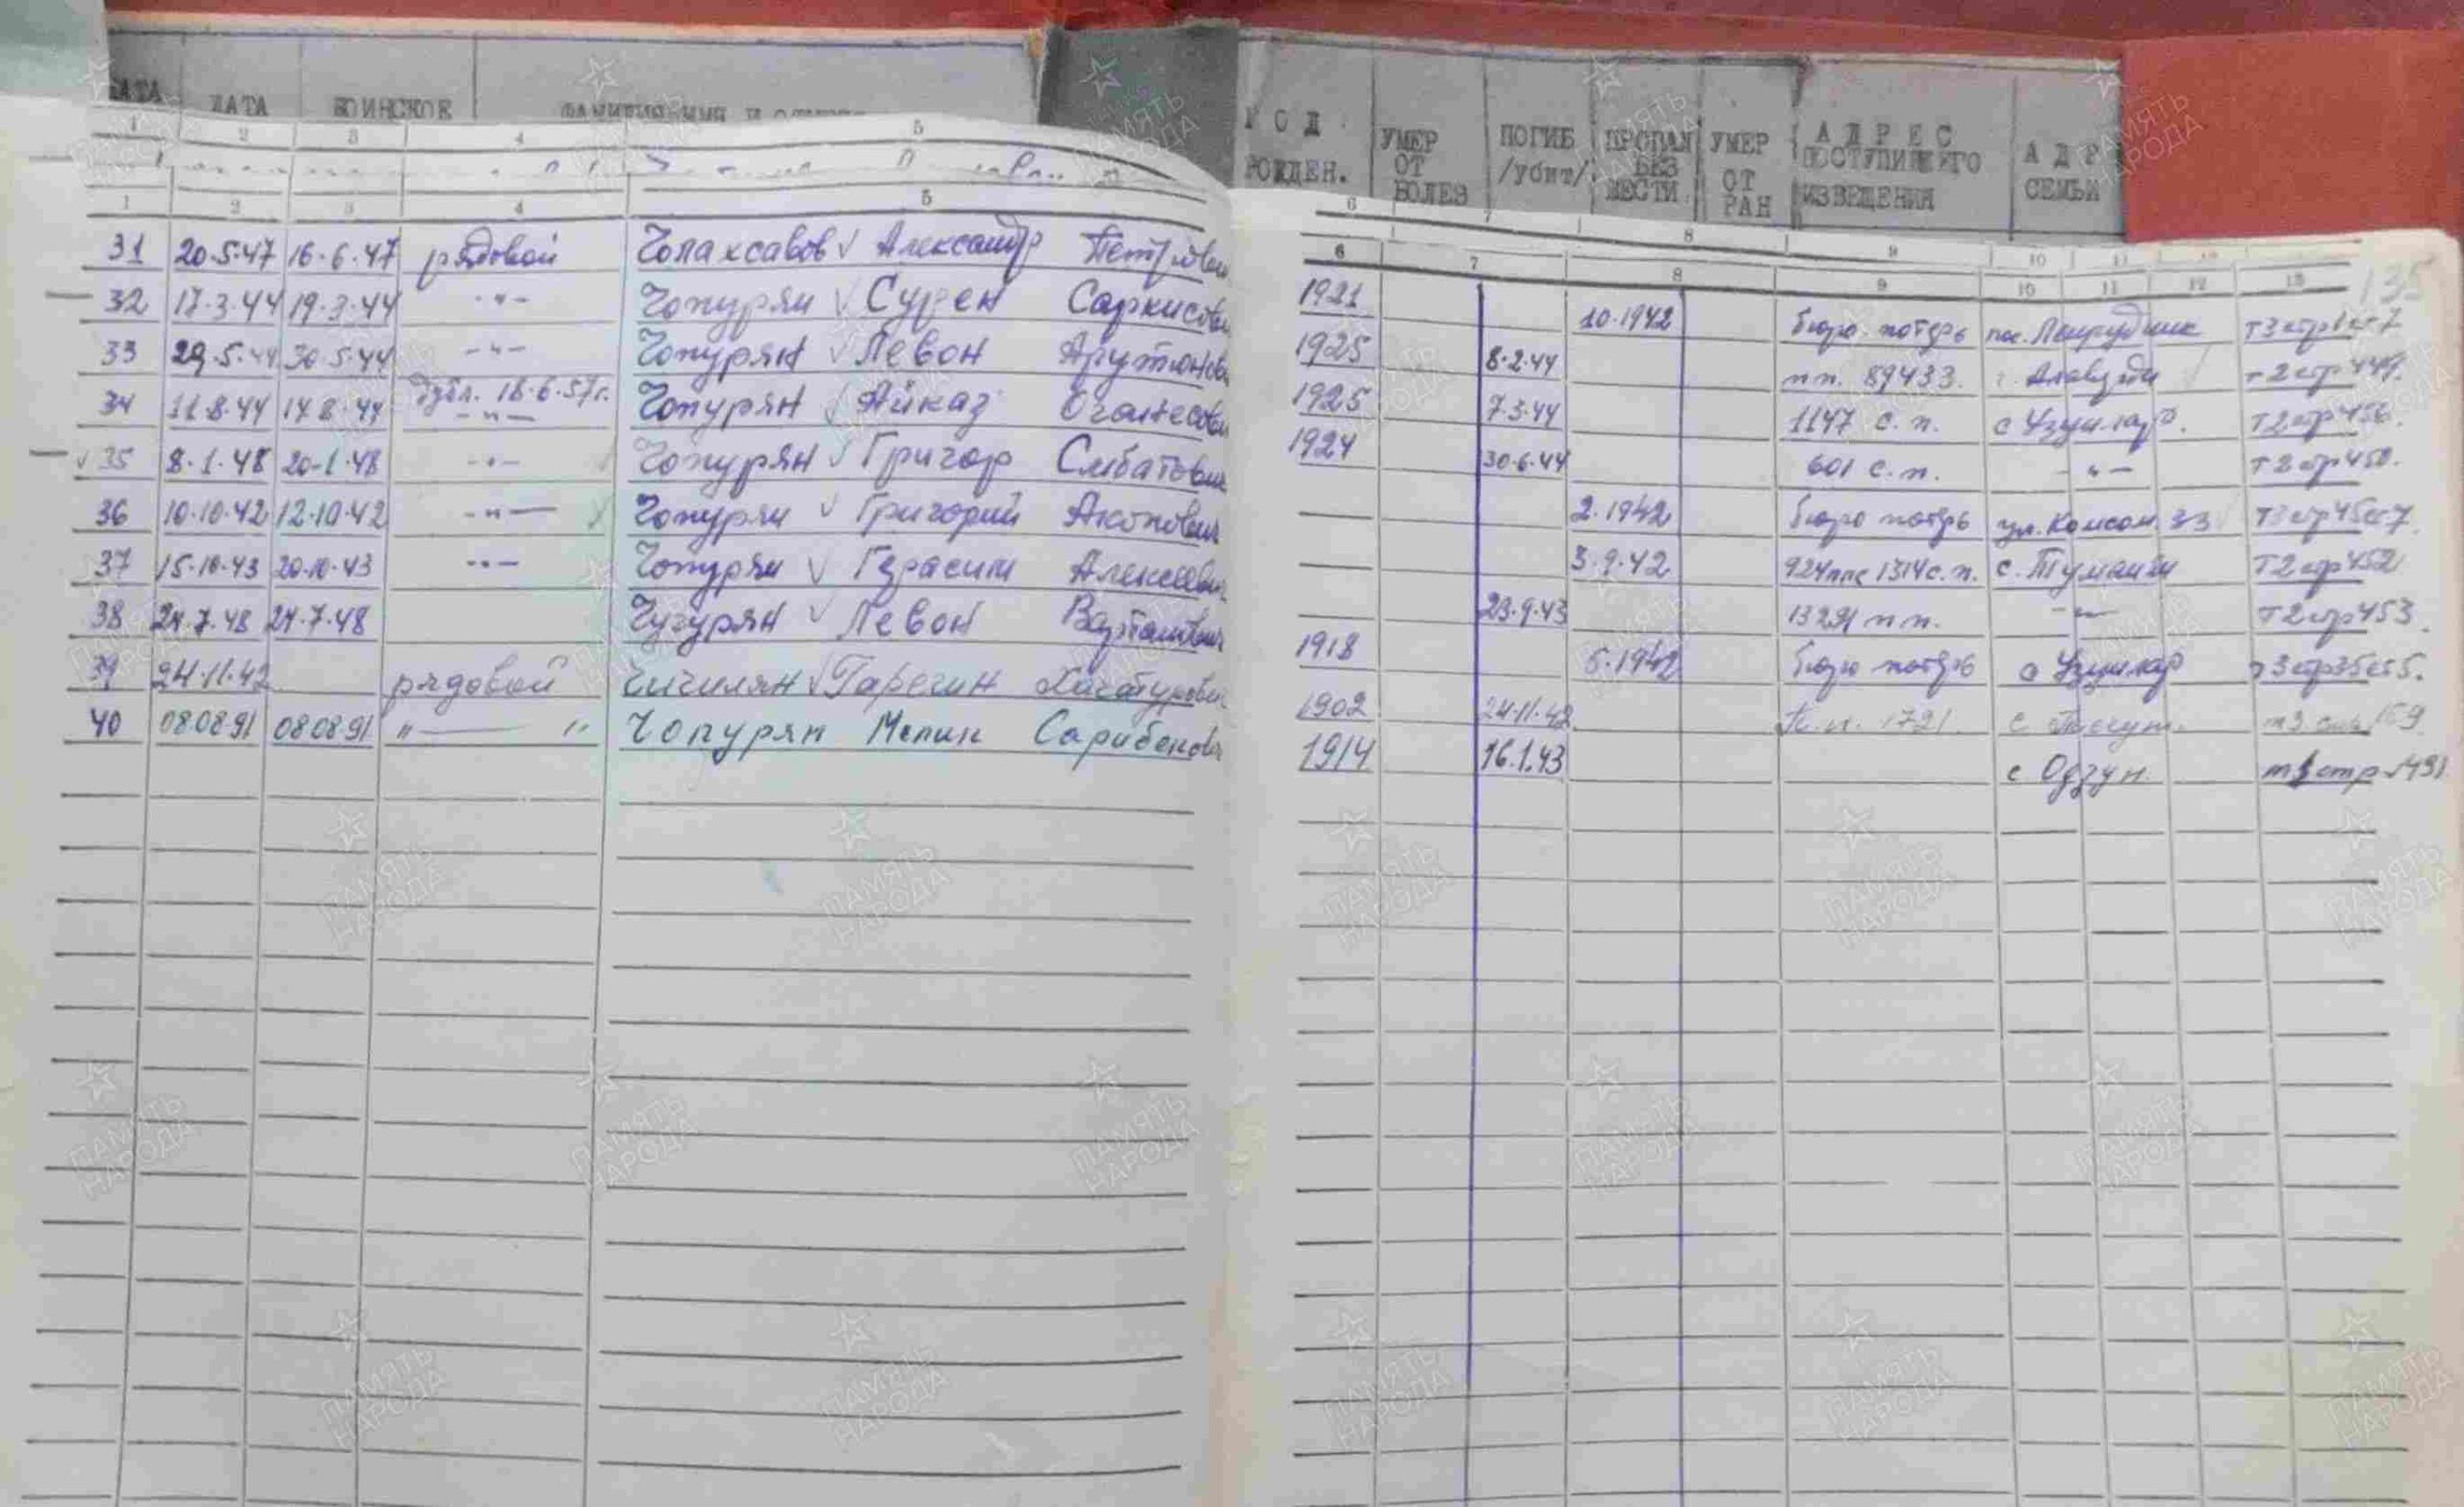 ДАТА ДАТА ВОИНСКОЕ ФАМИЛИЯ ИМЯ И
ГОД РОЖДЕН. УМЕР ОТ БОЛЕЗ ПОГИБ /убит/ ПРОПАЛ БЕЗ ВЕСТИ УМЕР ОТ РАН АДРЕС ПОСТУПИВШЕГО ИЗВЕЩЕНИЯ АДР СЕМЬИ
1 2 3 4 5 6 7 8 9 10 11 12
1 2 3 4 5 6 7 8 9 10 11 12 13
135
31 20.5.47 16.6.47 рядовой Чолахсавов Александр Петрович 1921 10.1942 бюро потерь пос. Т3 стр 1
32 17.3.44 19.3.44 -"- Чопурян Сурен Саркисович 1925 8.2.44 пп. 89433 г. Алаверди т2 стр 449
33 29.5.44 30.5.44 -"- Чопурян Левон Арутюнович 1925 7.3.44 1147 с.п. с Узунлар. Т2 стр 456
34 11.8.44 17.8.44 дубл. 18.6.57г. -"- Чопурян Айказ Оганесович 1924 30.6.44 601 с.п. -"- Т2 стр 450.
35 8.1.48 20.1.48 -"- Чопурян Григор Смбатович 2.1942 бюро потерь ул. Комсом. 33 Т3 стр 45
36 10.10.42 12.10.42 -"- Чопурян Григорий Акопович 3.9.42 924 ппс 1314 с.п. с. Туманян Т2 стр 452
37 15.10.43 20.10.43 -"- Чопурян Герасим Алексеевич 23.9.43 13291 пп. -"- Т2 стр 453
38 24.7.48 24.7.48 Чугурян Левон Вартанович 1918 5.1942 бюро потерь с Узунлар т3 стр 35
39 24.11.42 рядовой Чичилян Гарегин Хачатурович 1902 24.11.42 П.п. 1791 с т3 169
40 08.08.91 08.08.91 " — " Чопурян Мелик Сарибекович 1914 16.1.43 с Одзун. стр 491
ПАМЯТЬ НАРОДА